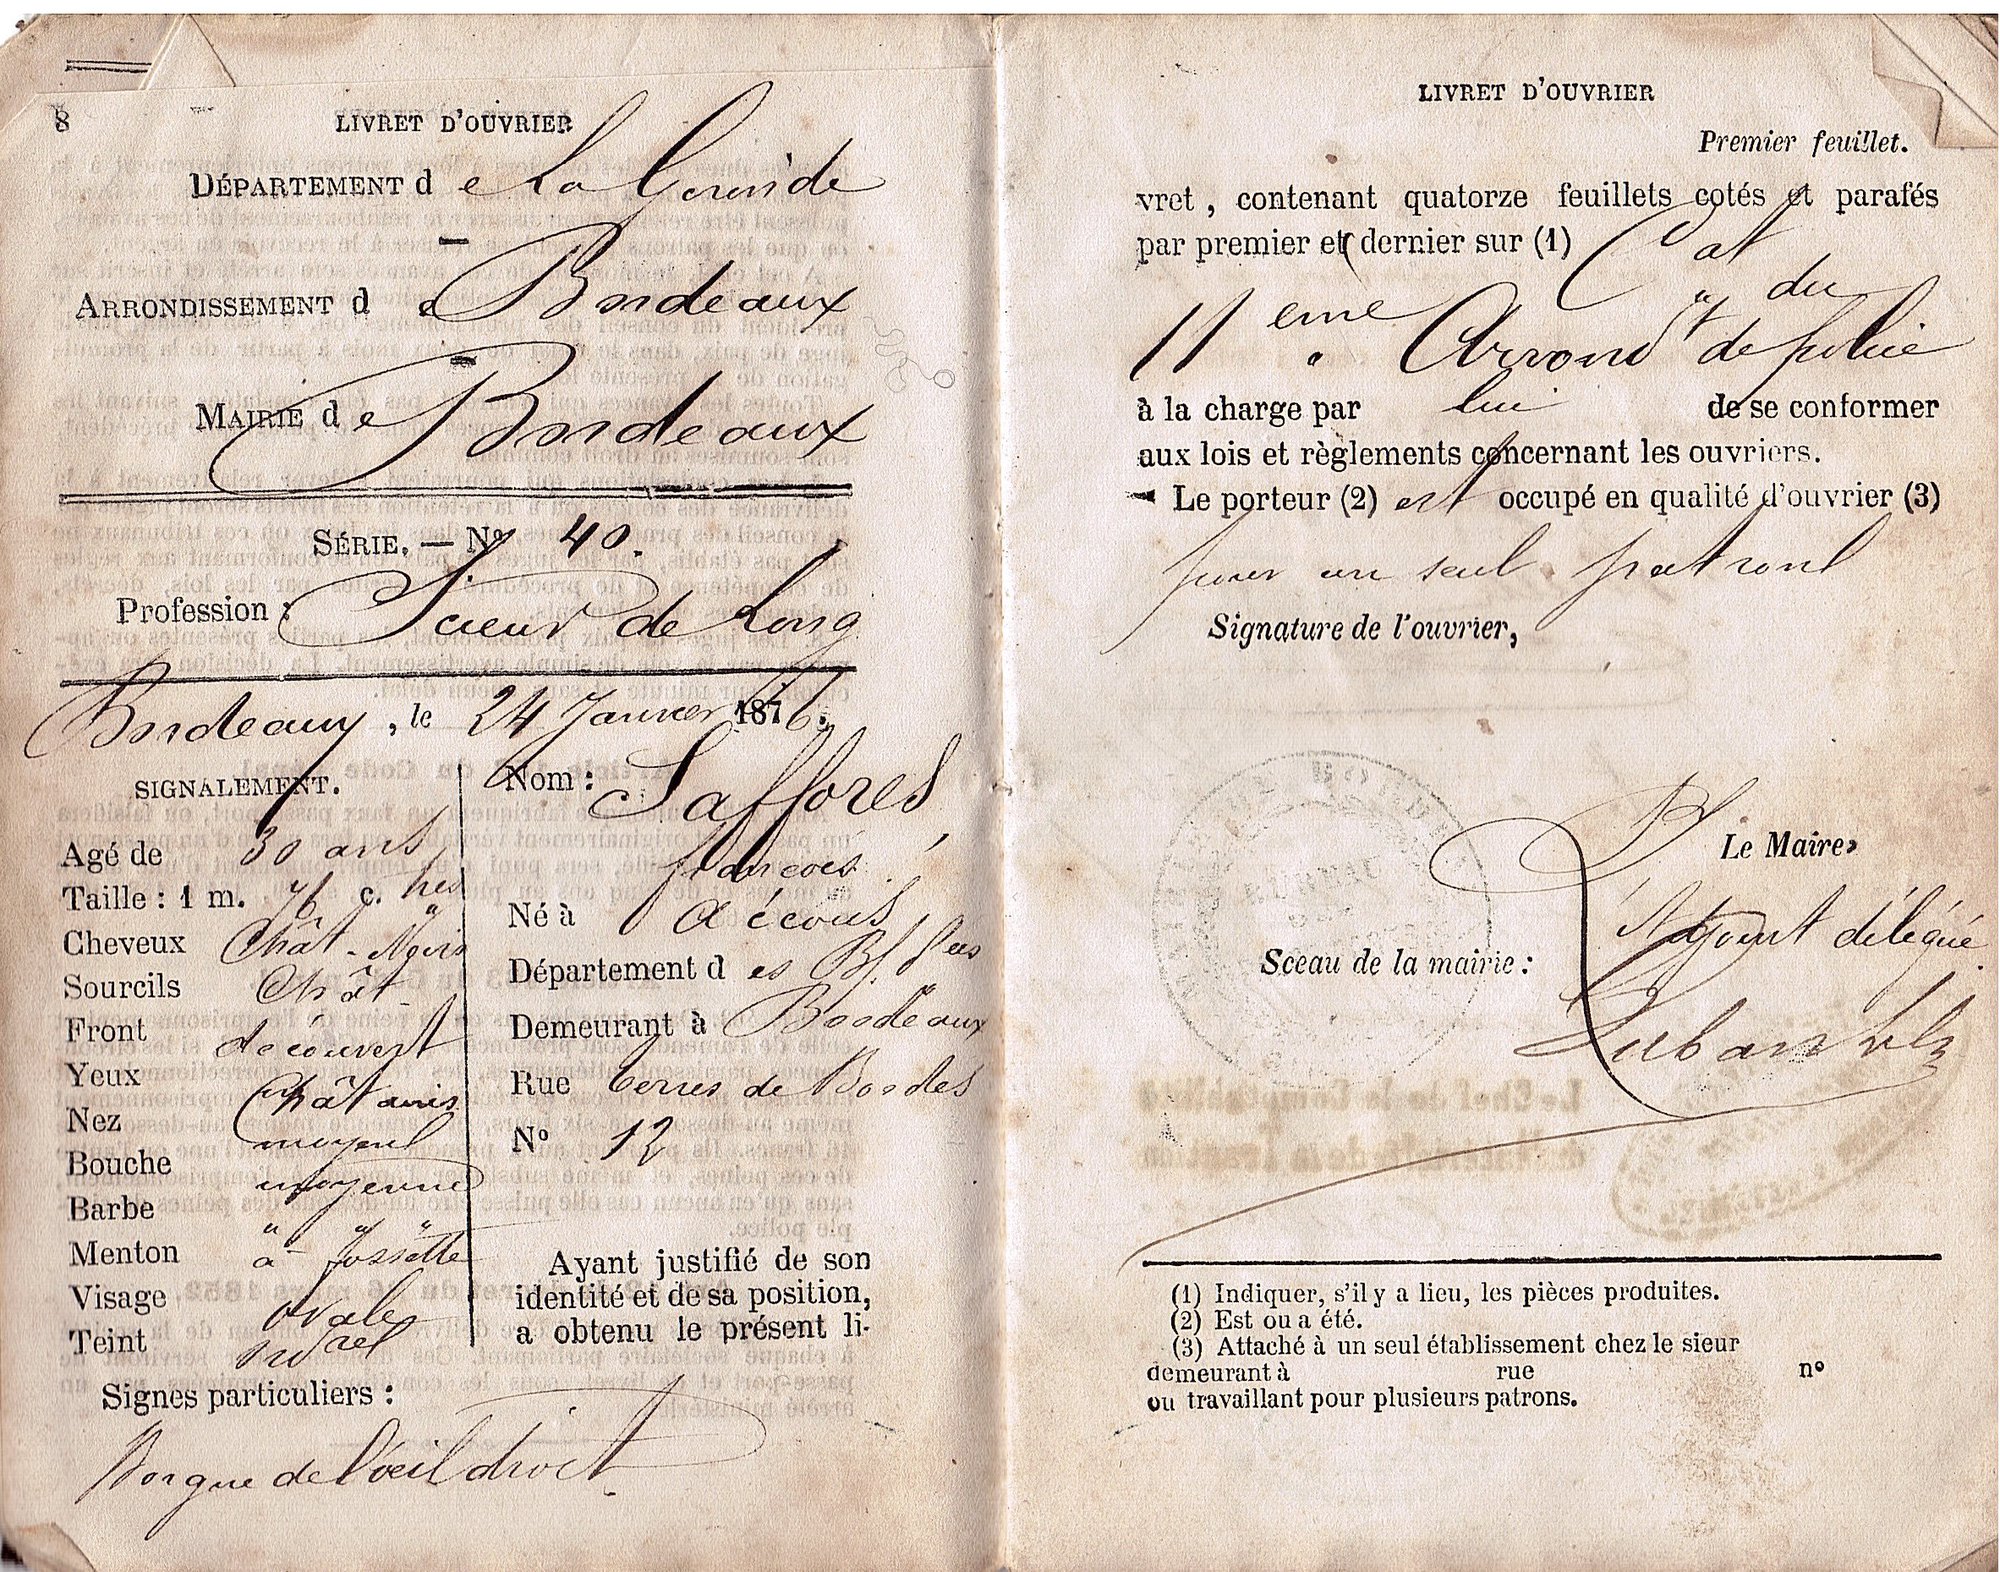 8
LIVRET D'OUVRIER
DÉPARTEMENT d e La Gironde
ARRONDISSEMENT d e Bordeaux
MAIRIE d e Bordeaux
SÉRIE. — No 40.
Profession : Scieur de Long
Bordeaux, le 24 Janvier 187
SIGNALEMENT.
Agé de 30 ans
Taille : 1 m. 76 c. tres
Cheveux Chât-Noirs
Sourcils Chât
Front découvert
Yeux Châtains
Nez moyen
Bouche moyenne
Barbe " " "
Menton à fossette
Visage ovale
Teint
Signes particuliers :
Borgne de l'oeil droit
Nom : Laffores
françois
Né à Accous
Département d es Bses Pees
Demeurant à Bordeaux
Rue Terres de Bordes
No 12
Ayant justifié de son
identité et de sa position,
a obtenu le présent li-
LIVRET D'OUVRIER
Premier feuillet.
vret, contenant quatorze feuillets cotés et parafés
par premier et dernier sur (1) Cat du
11 eme Arrondt de police
à la charge par lui de se conformer
aux lois et règlements concernant les ouvriers.
Le porteur (2) est occupé en qualité d'ouvrier (3)
pour un seul patron
Signature de l'ouvrier,
Le Maire,
l'Adjoint délégué
Sceau de la mairie :
(1) Indiquer, s'il y a lieu, les pièces produites.
(2) Est ou a été.
(3) Attaché à un seul établissement chez le sieur
demeurant à rue no
ou travaillant pour plusieurs patrons.